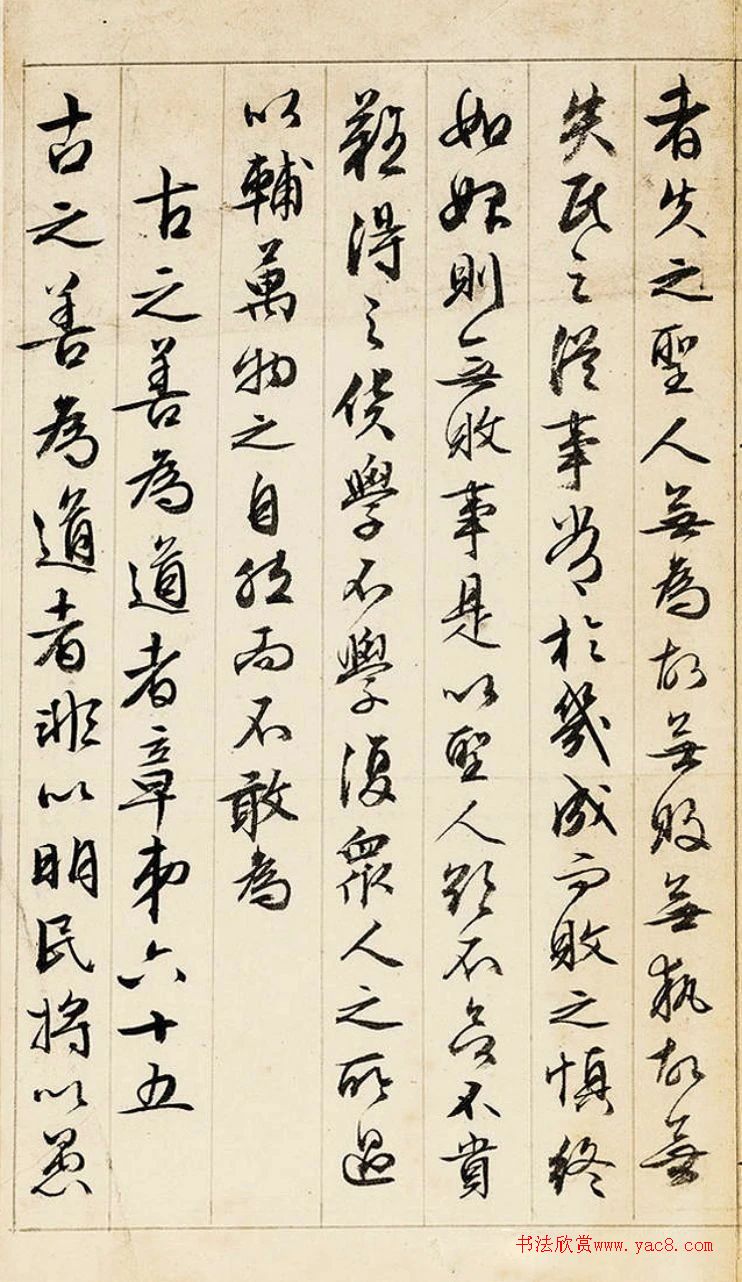 者失之聖人無為故無敗無執故無
失民之從事常於幾成而敗之慎終
如始則無敗事是以聖人欲不欲不貴
難得之貨學不學復眾人之所過
以輔萬物之自然而不敢為
古之善為道者章第六十五
古之善為道者非以明民將以愚
书法欣赏www.yac8.com